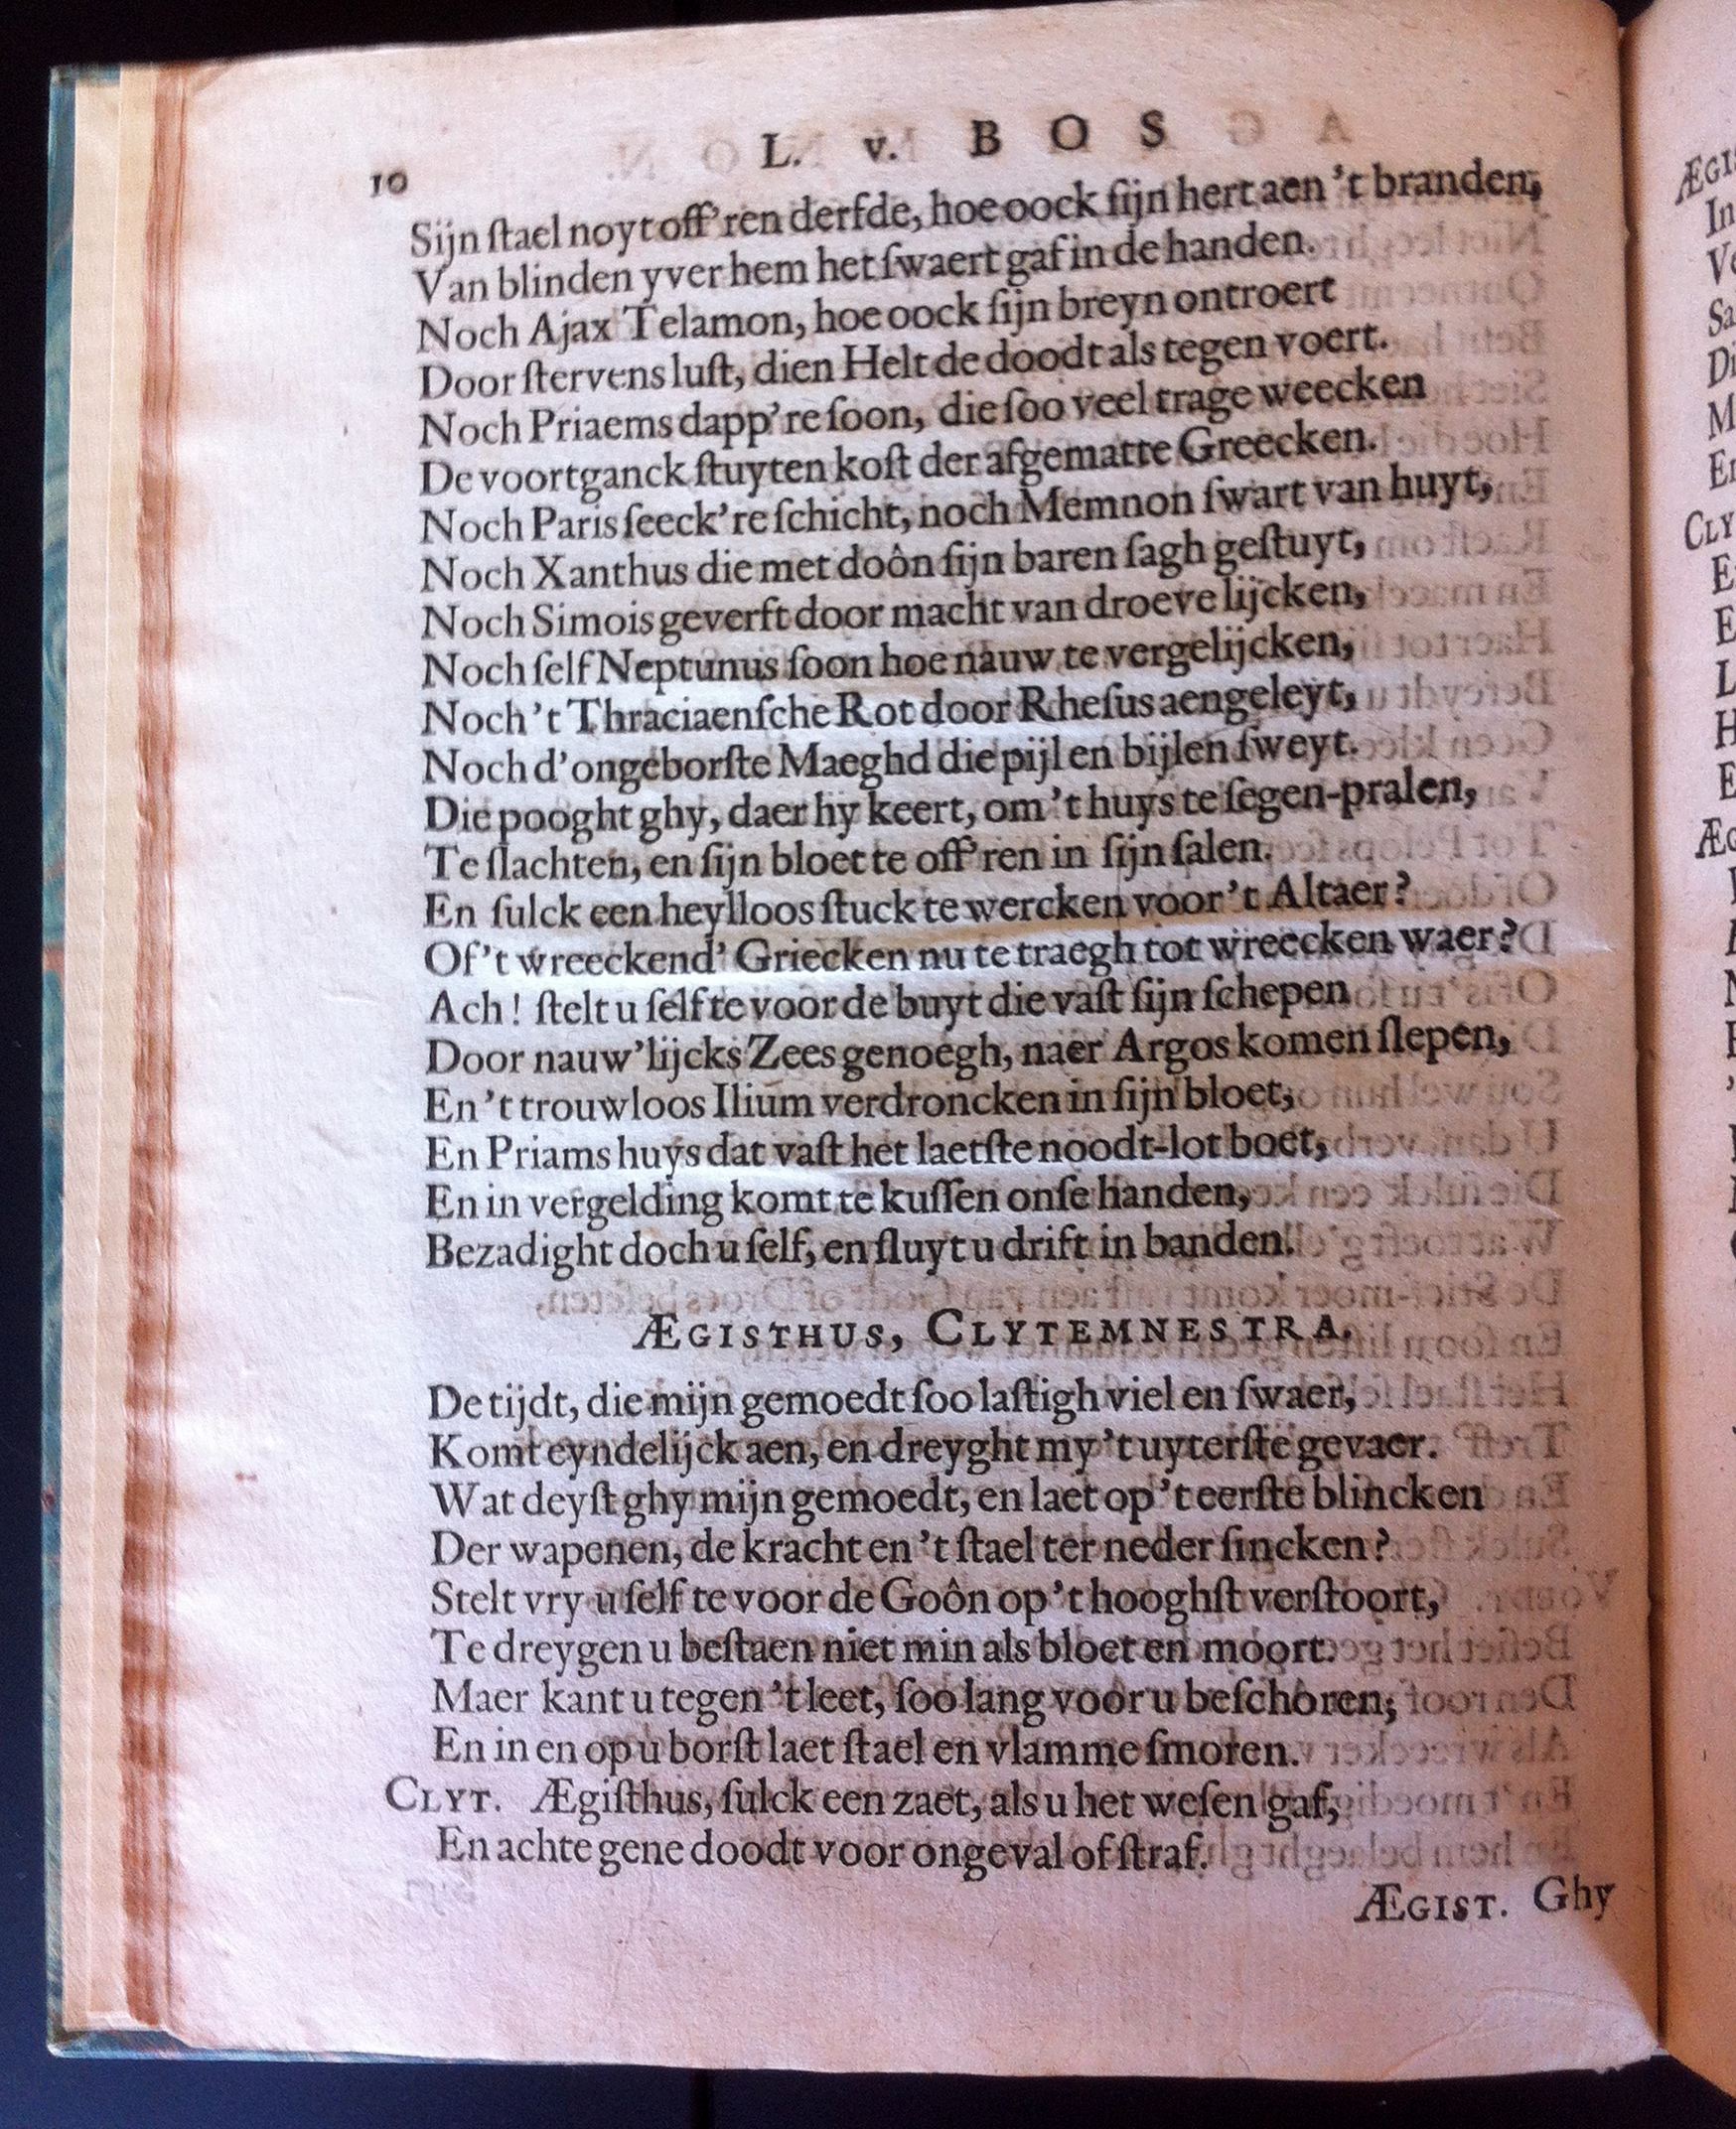 L. v. BOS
10
Sijn ſtael noyt off’ren derfde, hoe oock ſijn hert aen ’t branden,
Van blinden yver hem het ſwaert gaf in de handen.
Noch Ajax Telamon, hoe oock ſijn breyn ontroert
Door ſtervens luſt, dien Helt de doodt als tegen voert.
Noch Priaems dapp’re ſoon, die ſoo veel trage weecken
De voortganck ſtuyten koſt der afgematte Greecken.
Noch Paris ſeeck’re ſchicht, noch Memnon ſwart van huyt,
Noch Xanthus die met doôn ſijn baren ſagh geſtuyt,
Noch Simois geverft door macht van droeve lijcken,
Noch ſelf Neptunus ſoon hoe nauw te vergelijcken,
Noch ’t Thraciaenſche Rot door Rheſus aengeleyt,
Noch d’ongeborſte Maeghd die pijl en bijlen ſweyt.
Die pooght ghy, daer hy keert, om ’t huys te ſegen-pralen,
Te ſlachten, en ſijn bloet te off’ren in ſijn ſalen.
En ſulck een heylloos ſtuck te wercken voor ’t Altaer?
Of ’t wreeckend’ Griecken nu te traegh tot wreecken waer?
Ach! ſtelt u ſelf te voor de buyt die vaſt ſijn ſchepen
Door nauw’lijcks Zees genoegh, naer Argos komen ſlepen,
En ’t trouwloos Ilium verdroncken in ſijn bloet,
En Priams huys dat vaſt het laetſte noodt-lot boet,
En in vergelding komt te kuſſen onſe handen,
Bezadight doch u ſelf, en ſluyt u drift in banden.
ÆGISTHUS, CLYTEMNESTRA.
De tijdt, die mijn gemoedt ſoo laſtigh viel en ſwaer,
Komt eyndelijck aen, en dreyght my ’t uyterſte gevaer.
Wat deyſt ghy mijn gemoedt, en laet op ’t eerſte blincken
Der wapenen, de kracht en ’t ſtael ter neder ſincken?
Stelt vry u ſelf te voor de Goôn op ’t hooghſt verſtoort,
Te dreygen u beſtaen niet min als bloet en moort.
Maer kant u tegen ’t leet, ſoo lang voor u beſchoren;
En in en op u borſt laet ſtael en vlamme ſmoren.
CLYT. Ægiſthus, ſulck een zaet, als u het weſen gaf,
En achte gene doodt voor ongeval of ſtraf.
ÆGIST. Ghy